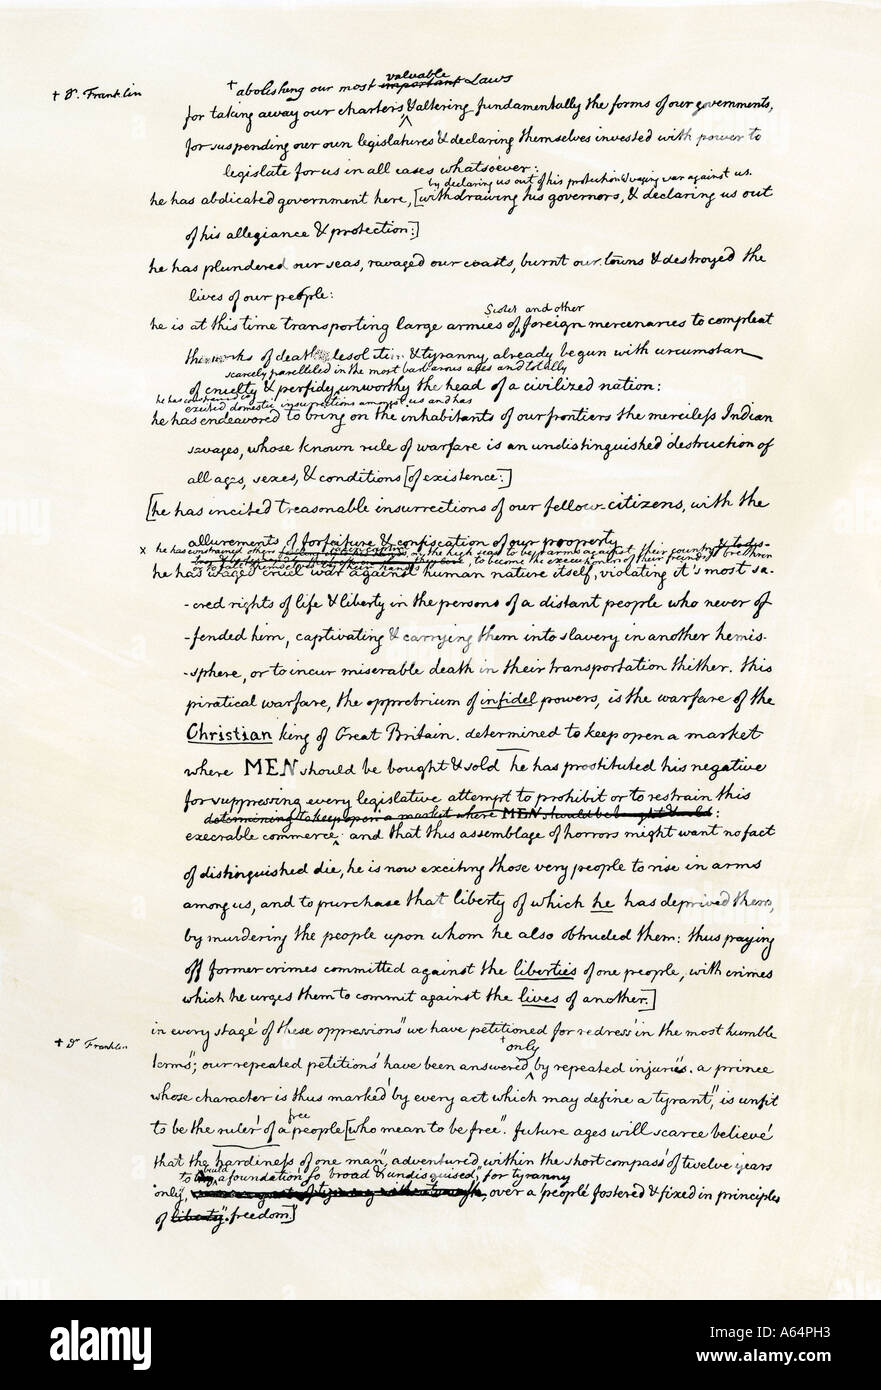 † Dr. Franklin
† abolishing our most valuable important Laws
for taking away our charters & altering fundamentally the forms of our governments,
for suspending our own legislatures & declaring themselves invested with power to
legislate for us in all cases whatsoever:
by declaring us out of his protection & waging war against us.
he has abdicated government here, [withdrawing his governors, & declaring us out
of his allegiance & protection:]
he has plundered our seas, ravaged our coasts, burnt our towns & destroyed the
lives of our people:
Scotch and other
he is at this time transporting large armies of foreign mercenaries to compleat
the works of death desolation & tyranny already begun with circumstan
scarcely paralleled in the most barbarous ages and totally
of cruelty & perfidy unworthy the head of a civilized nation:
he has
excited domestic insurrections amongst us and has
he has endeavored to bring on the inhabitants of our frontiers the merciless Indian
savages, whose known rule of warfare is an undistinguished destruction of
all ages, sexes, & conditions [of existence:]
[he has incited treasonable insurrections of our fellow-citizens, with the
allurements of forfeiture & confiscation of our property
x he has constrained others on the high seas to bear arms against their country & brethren
to become the executioners of their friends
he has waged cruel war against human nature itself, violating it's most sa-
-cred rights of life & liberty in the persons of a distant people who never of
-fended him, captivating & carrying them into slavery in another hemis-
-sphere, or to incur miserable death in their transportation thither. this
piratical warfare, the opprobrium of infidel powers, is the warfare of the
Christian king of Great Britain. determined to keep open a market
where MEN should be bought & sold he has prostituted his negative
for suppressing every legislative attempt to prohibit or to restrain this
determining to keep open a market where MEN should be bought & sold:
execrable commerce: and that this assemblage of horrors might want no fact
of distinguished die, he is now exciting those very people to rise in arms
among us, and to purchase that liberty of which he has deprived them,
by murdering the people upon whom he also obtruded them: thus paying
off former crimes committed against the liberties of one people, with crimes
which he urges them to commit against the lives of another.]
in every stage of these oppressions we have petitioned for redress in the most humble
† Dr Franklin
† only
terms; our repeated petitions have been answered by repeated injuries. a prince
whose character is thus marked by every act which may define a tyrant, is unfit
free
to be the ruler of a people [who mean to be free. future ages will scarce believe
that the hardiness of one man, adventured within the short compass of twelve years
to build a foundation so broad & undisguised, for tyranny
only, over a people fostered & fixed in principles
of liberty freedom.]
alamy
Image ID: A64PH3
www.alamy.com